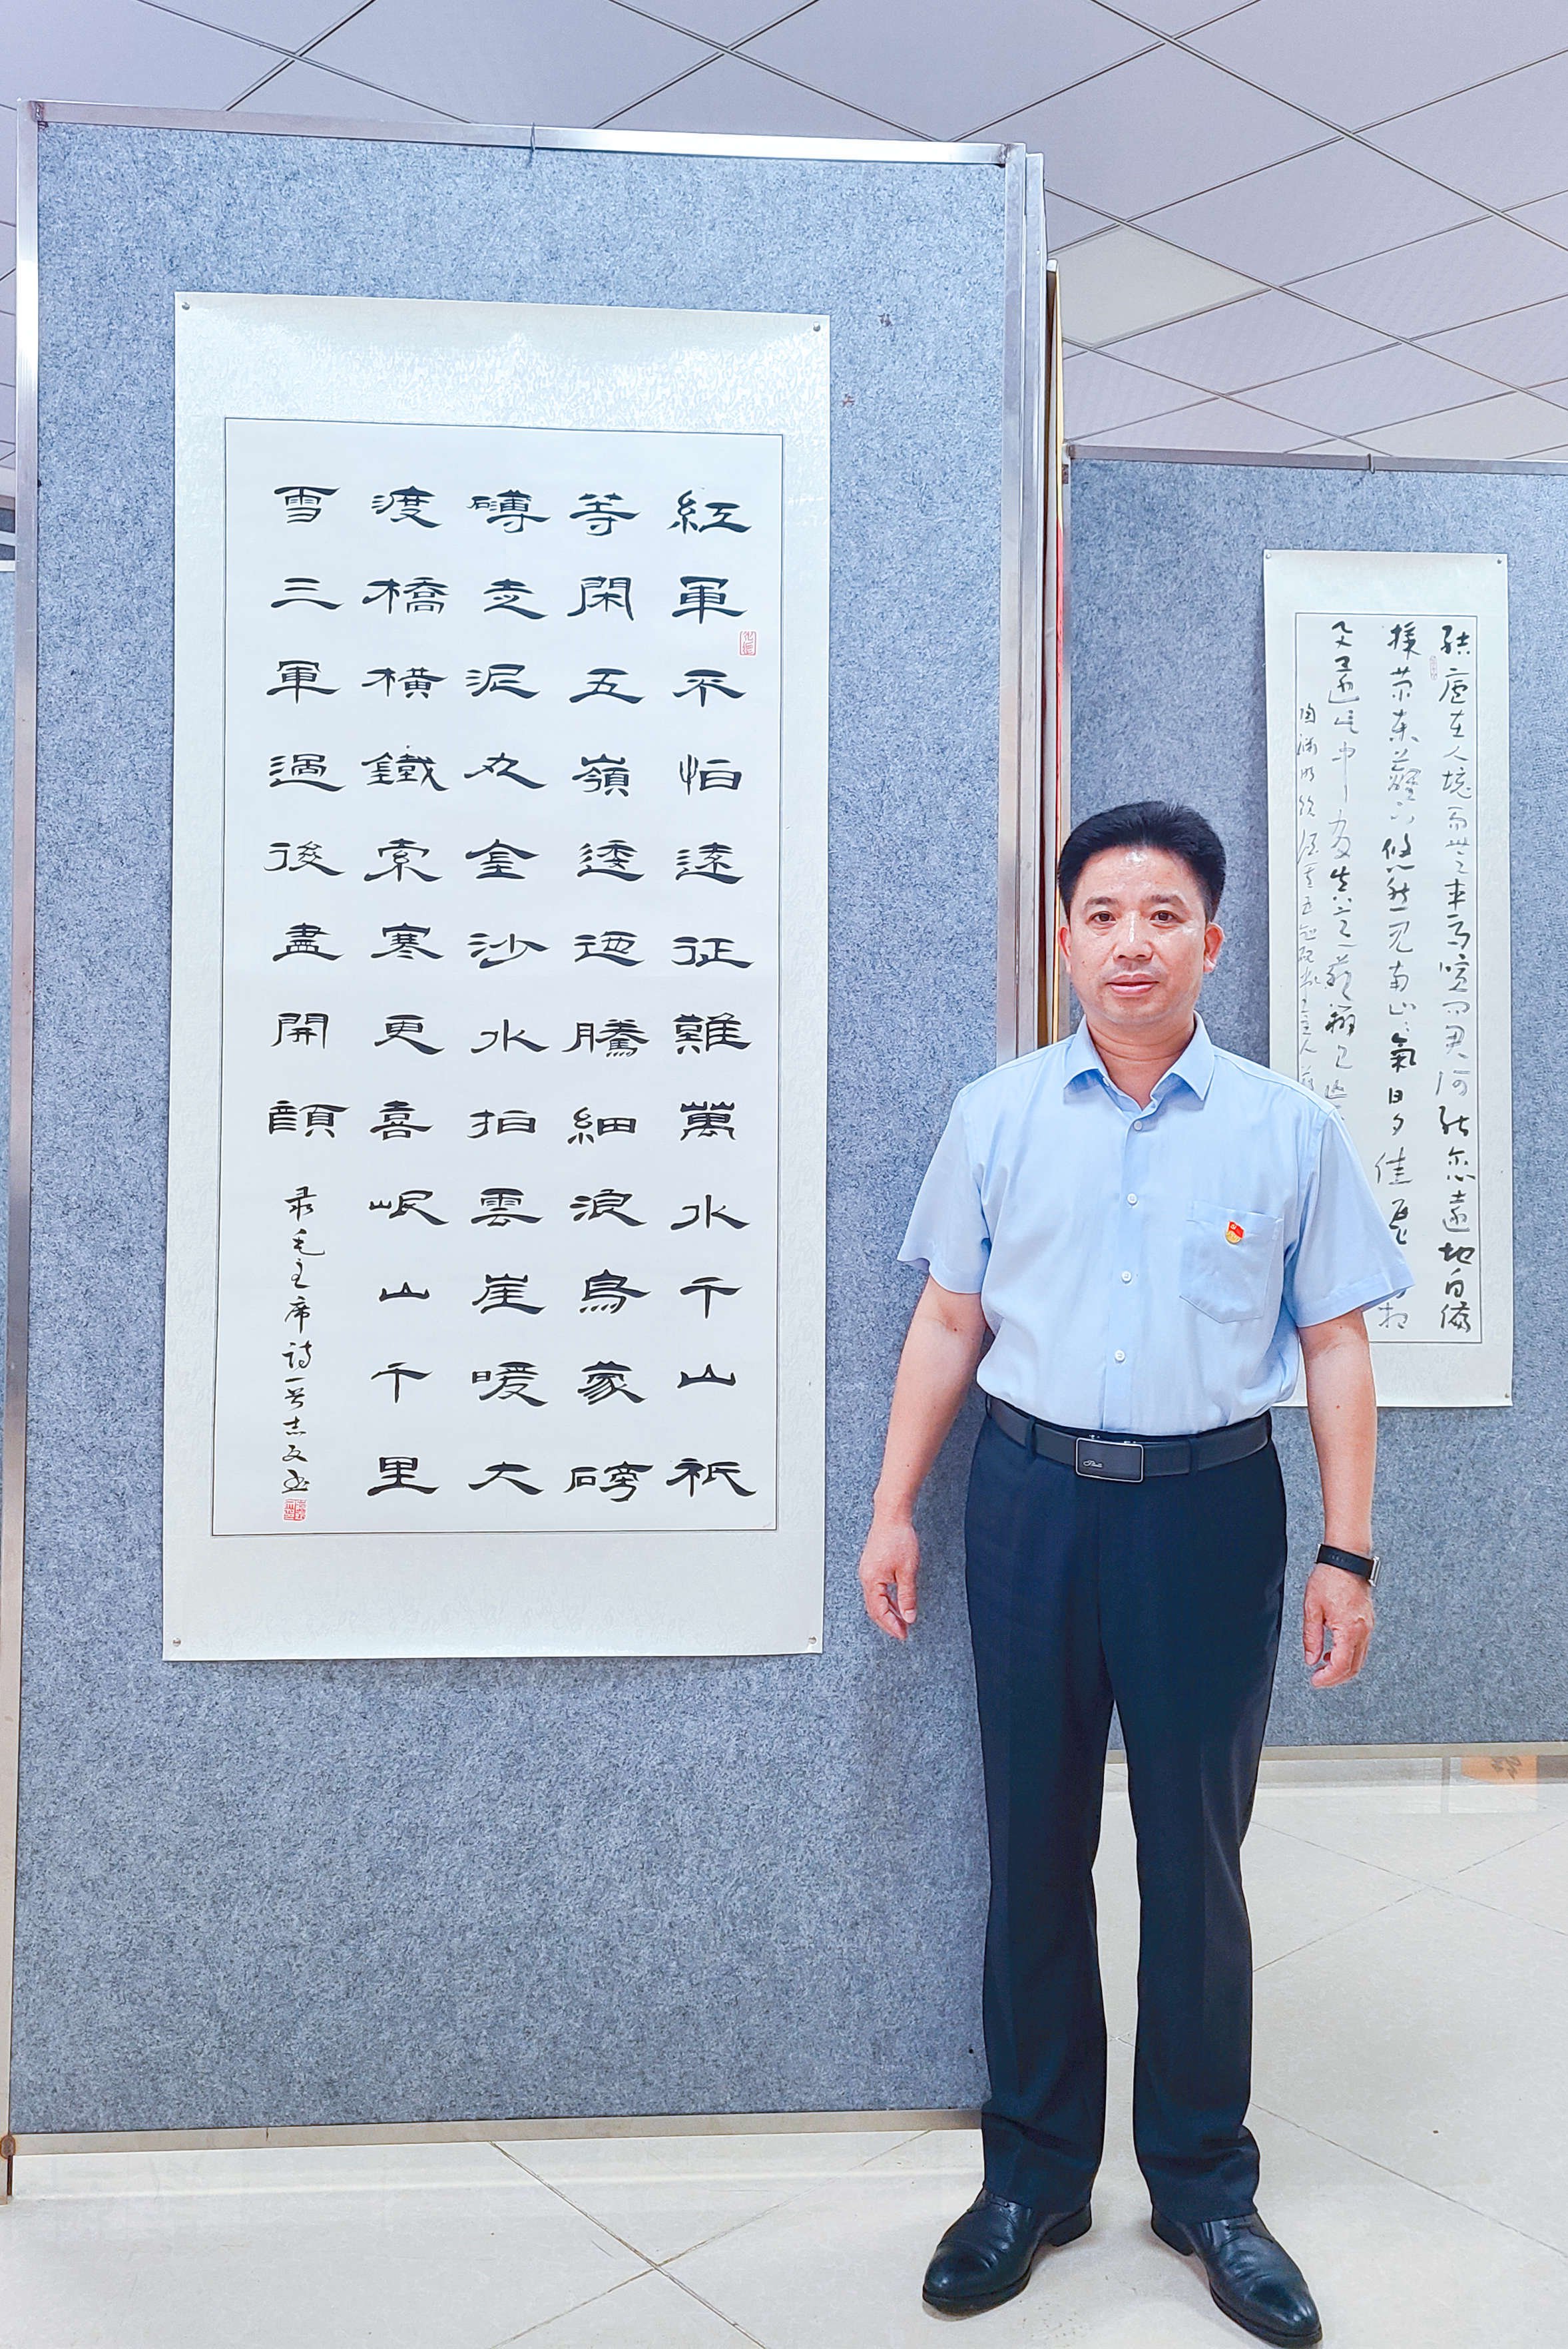 紅軍不怕遠征難萬水千山祇
等閑五嶺逶迤騰細浪烏蒙磅
礴走泥丸金沙水拍雲崖暖大
渡橋橫鐵索寒更喜岷山千里
雪三軍過後盡開顏
录毛主席诗一首志文书
结庐在人境而無車马喧问君何能尔心遠地自偏
採菊东籬下悠然见南山山氣日夕佳飛相
与還此中有真意欲辨已
陶渊明饮酒其五